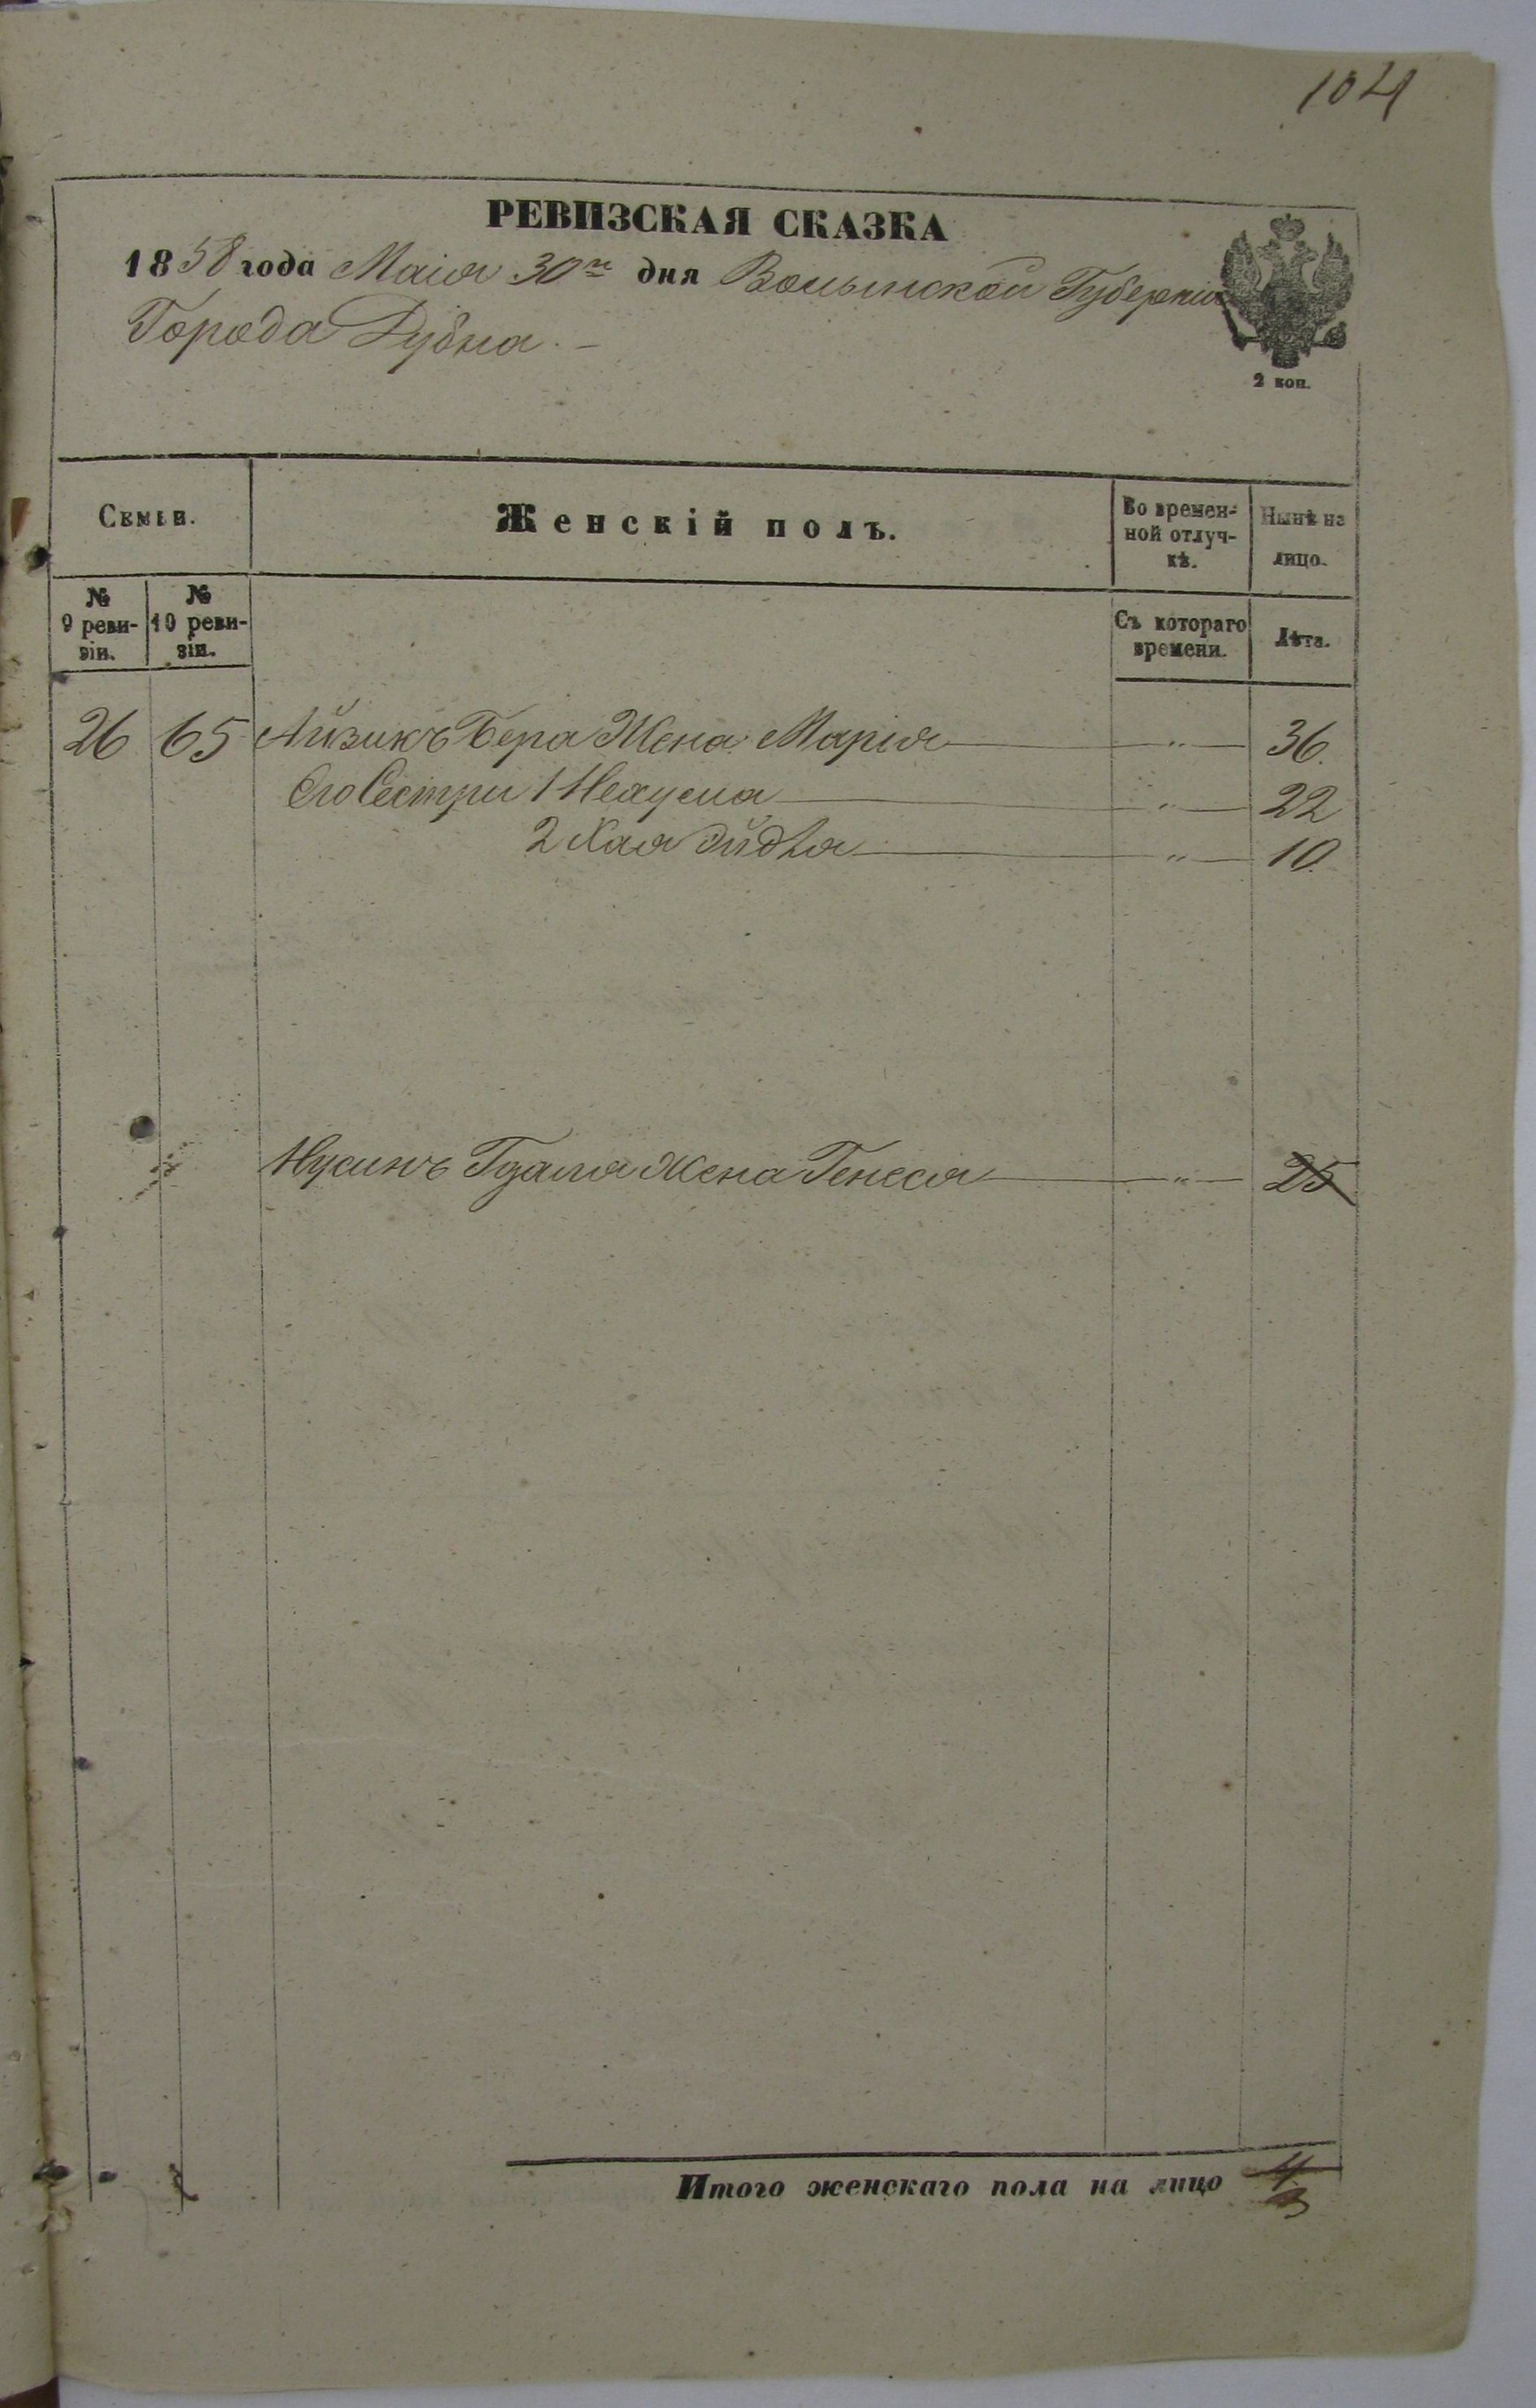 104
РЕВИЗСКАЯ СКАЗКА
1858 года Маія 30го дня Волынской Губерніи
Города Дубна. –
2 коп.
Семьи.
Женскій полъ.
Во времен-
ной отлуч-
кѣ.
Нынѣ на
лицо.
№
9 реви-
зіи.
№
10 реви-
зіи.
Съ котораго
времени.
Лѣта.
26 65 Айзикъ Бера Жена Марія — " — 36.
Его Сестры 1 Нехума — " — 22
2 Хая Эйдля — " — 10.
Нусинъ Гдаля Жена Генеся — " — 25
Итого женскаго пола на лицо 4
3